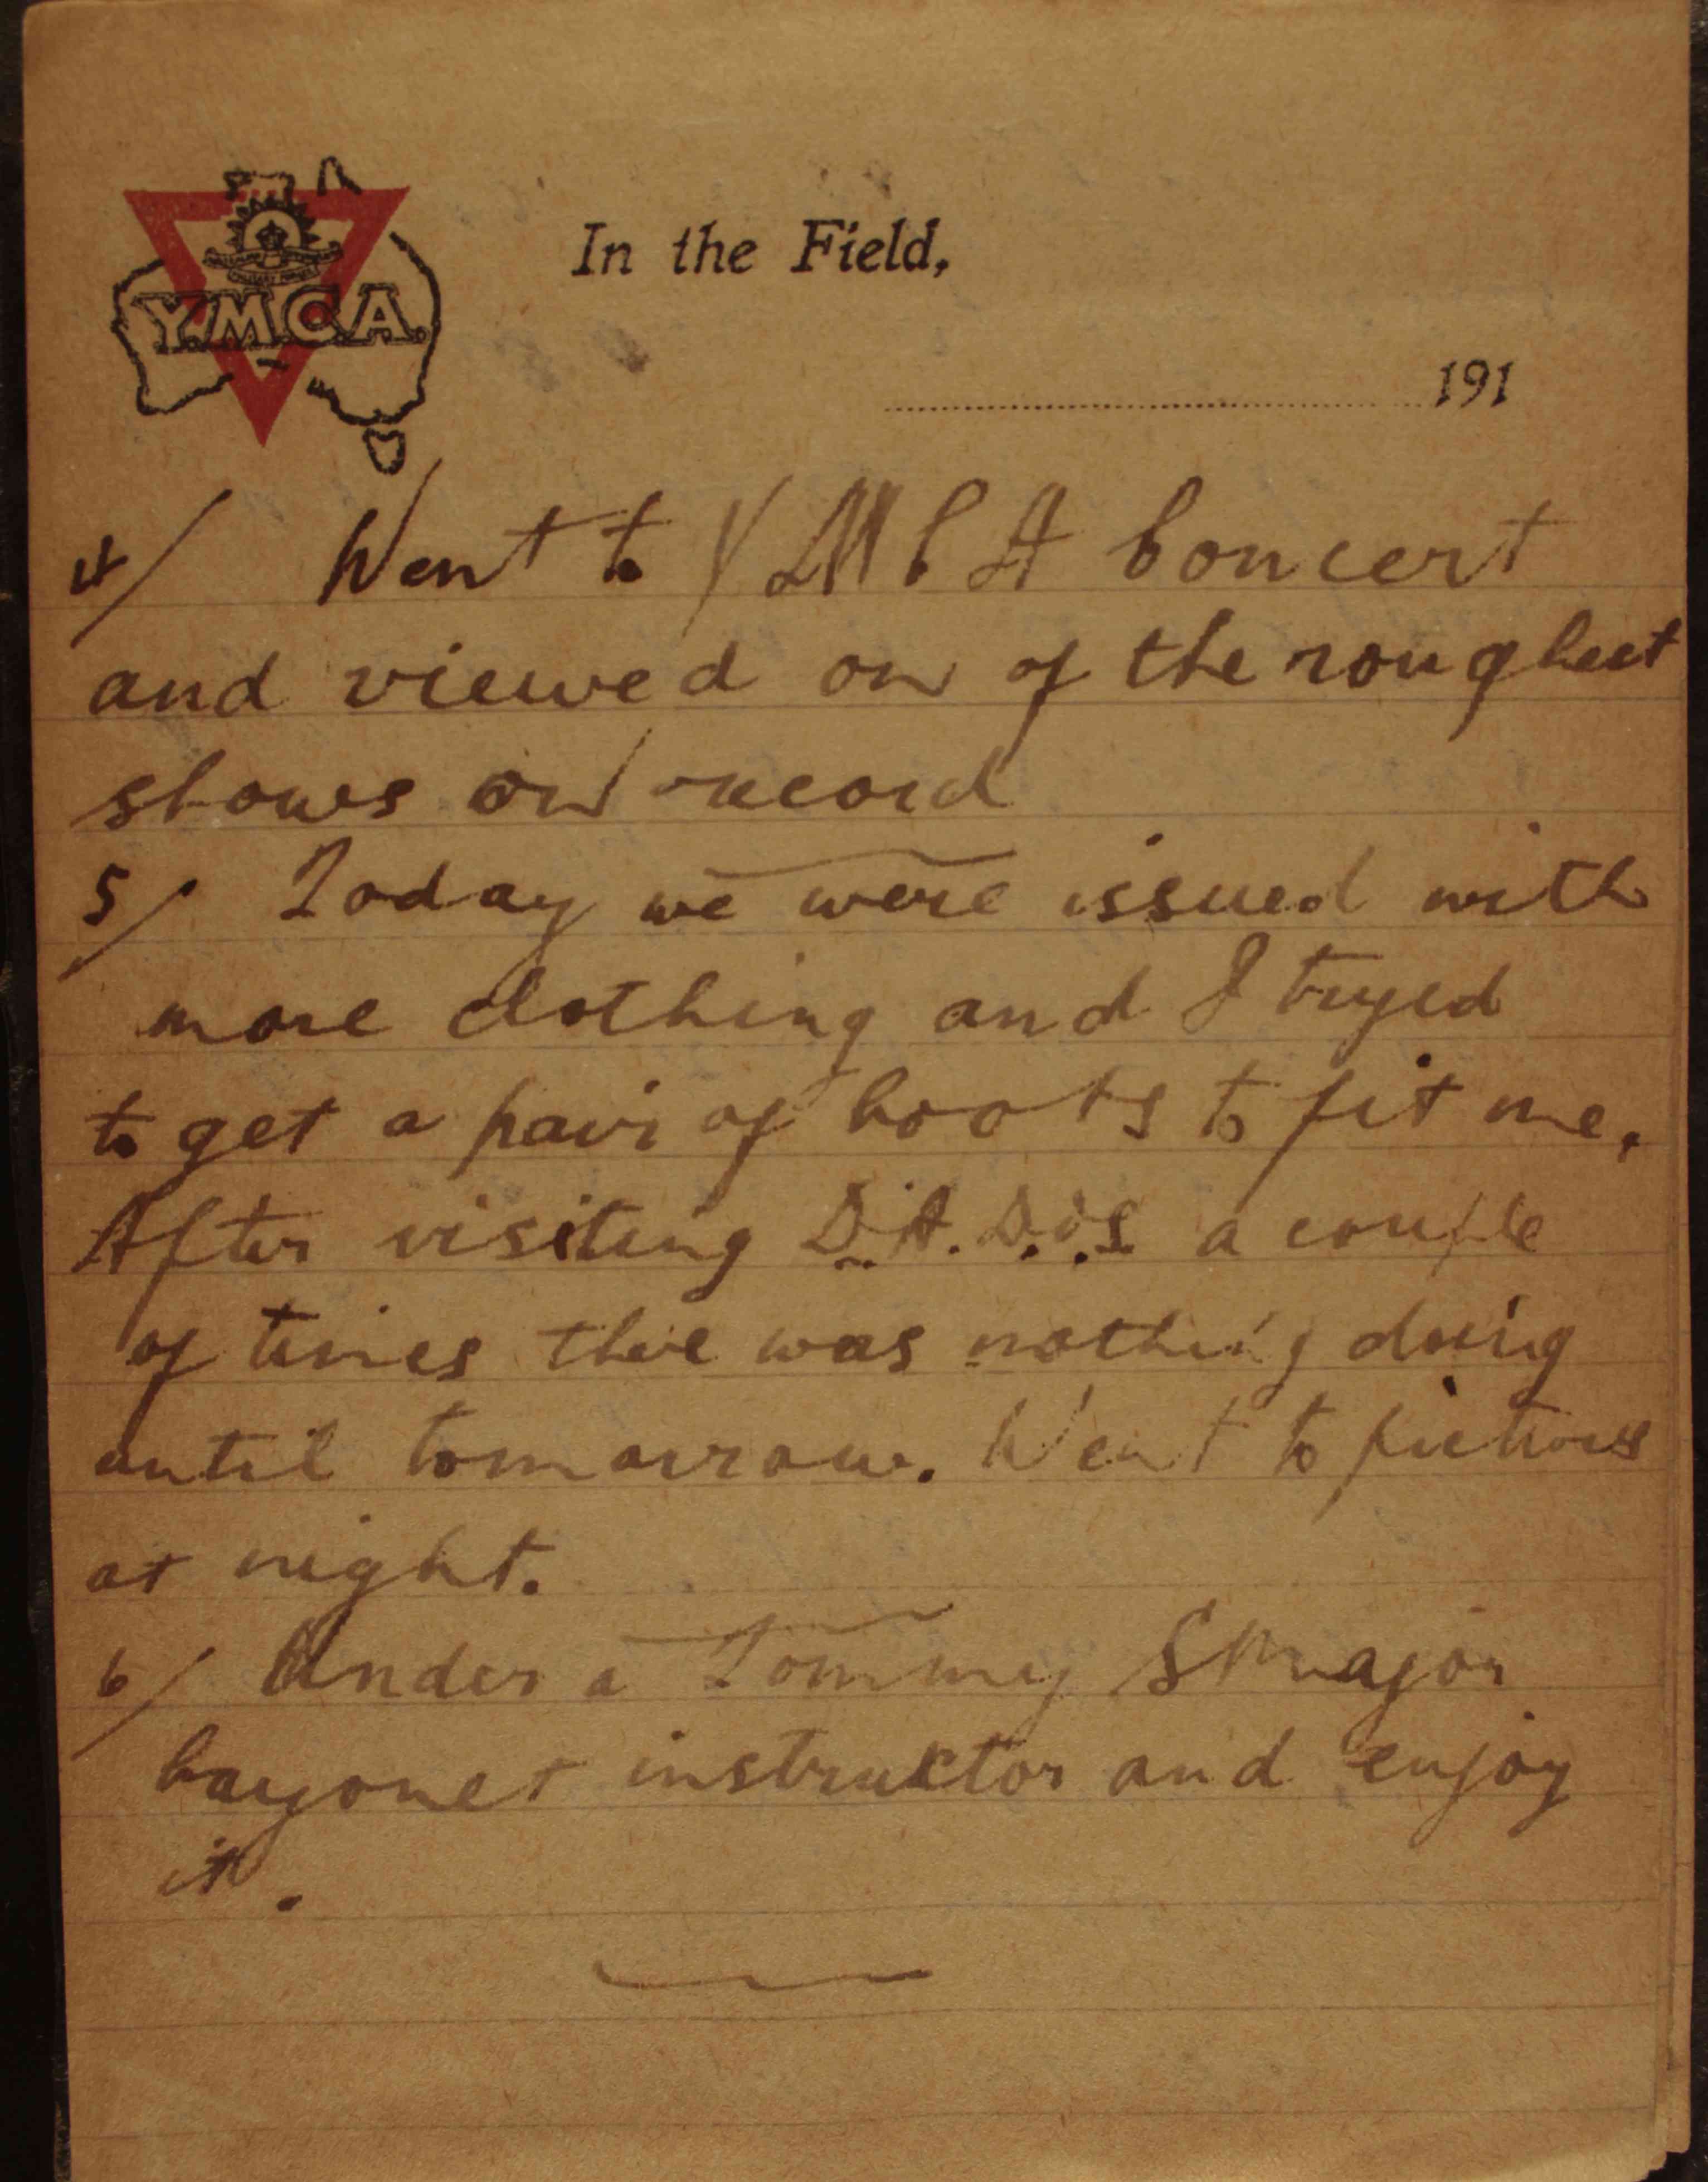 Y.M.C.A.
In the Field,
191
4/ Went to YMCA Concert
and viewed on of the roughest
shows on record
5/ Today we were issued with
more clothing and I tryed
to get a pair of boots to fit me.
After visiting D.A.D.O.S a couple
of times there was nothing doing
until tomorrow. Went to pictures
at night.
6/ Under a Tommy S Major
bayonet instruktor and enjoy
it.